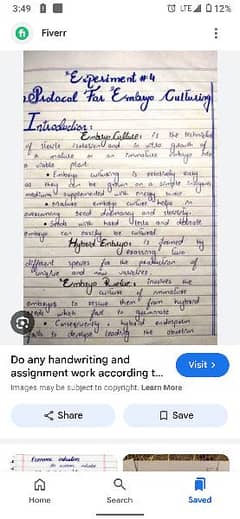 3:49
LTE 12%
Fiverr
"Experiment #4
Protocol For "Embryo Culturing
Introduction:
Embryo Culture: is the technique
of sterile isolation and in vitro growth of
a mature or an immature embryo
a viable plant.
• Embryo culturing is relatively easy
as they can be grown on a simple
medium supplemented with energy
• Mature embryo culture helps in
overcoming seed dormancy and sterility.
• Seeds with hard testa and delicate
embryo can easily be cultured.
Hybrid Embryo: is formed by
crossing two
different species for the production of
unique and new varieties.
"Embryo Rescue: involves the
culture of immature
embryos to rescue them from hybrid
seeds which fail to germinate
• Consequently, hybrid endosperm
fails to develop leading the abortion
Do any handwriting and
assignment work according t...
Visit >
Images may be subject to copyright. Learn More
Share
Save
Home
Search
Saved